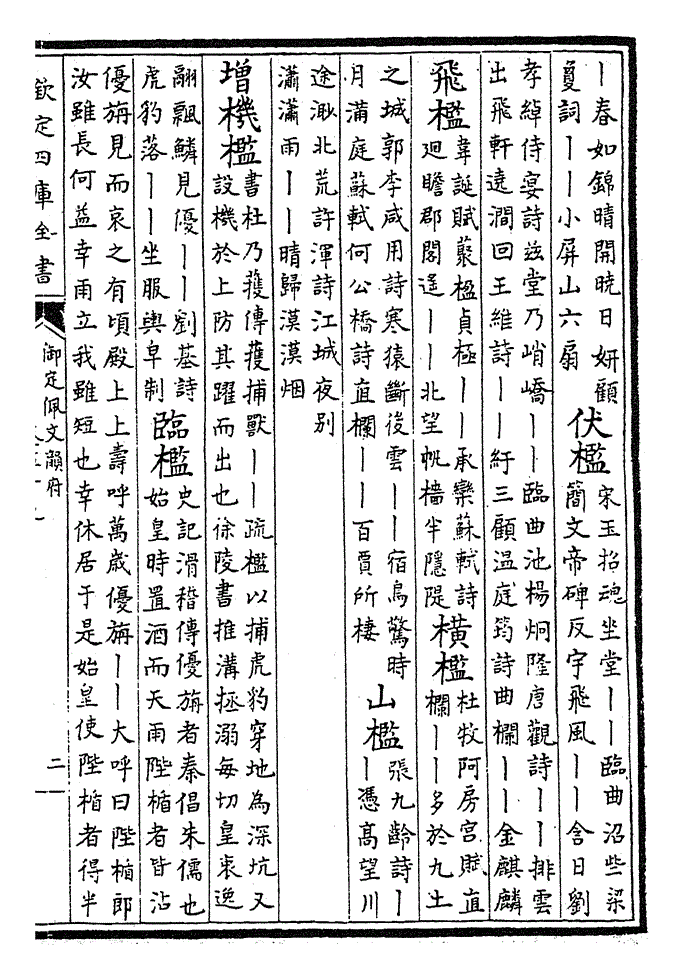 丨春如錦晴開曉日妍顧
敻詞丨丨小屏山六扇
伏檻
宋玉招魂坐堂丨丨臨曲沼些梁
簡文帝碑反宇飛風丨丨含日劉
孝綽侍宴詩兹堂乃峭嶠丨丨臨曲池楊炯隆唐觀詩丨丨排雲
出飛軒遠澗回王維詩丨丨紆三顧温庭筠詩曲欄丨丨金麒麟
飛檻
韋誕賦藂楹負極丨丨承欒蘇軾詩
迴瞻郡閣遙丨丨北望帆檣半隱隄
橫檻
杜牧阿房宫賦直
欄丨丨多於九土
之城郭李咸用詩寒猿斷後雲丨丨宿鳥驚時
月滿庭蘇軾何公橋詩直欄丨丨百賈所棲
山檻
張九齡詩丨
丨憑高望川
途渺北荒許渾詩江城夜别
瀟瀟雨丨丨晴歸漠漠烟
增機檻
書杜乃擭傳擭捕獸丨丨疏檻以捕虎豹穿地為深坑又
設機於上防其躍而出也徐陵書推溝拯溺每切皇衷逸
翮飄鱗見優丨丨劉基詩
虎豹落丨丨坐服輿皁制
臨檻
史記滑稽傳優旃者秦倡朱儒也
始皇時置酒而天雨陛楯者皆沾
優旃見而哀之有頃殿上上壽呼萬歲優旃丨丨大呼曰陛楯郎
汝雖長何益幸雨立我雖短也幸休居于是始皇使陛楯者得半
欽定四庫全書
御定佩文韻府
二